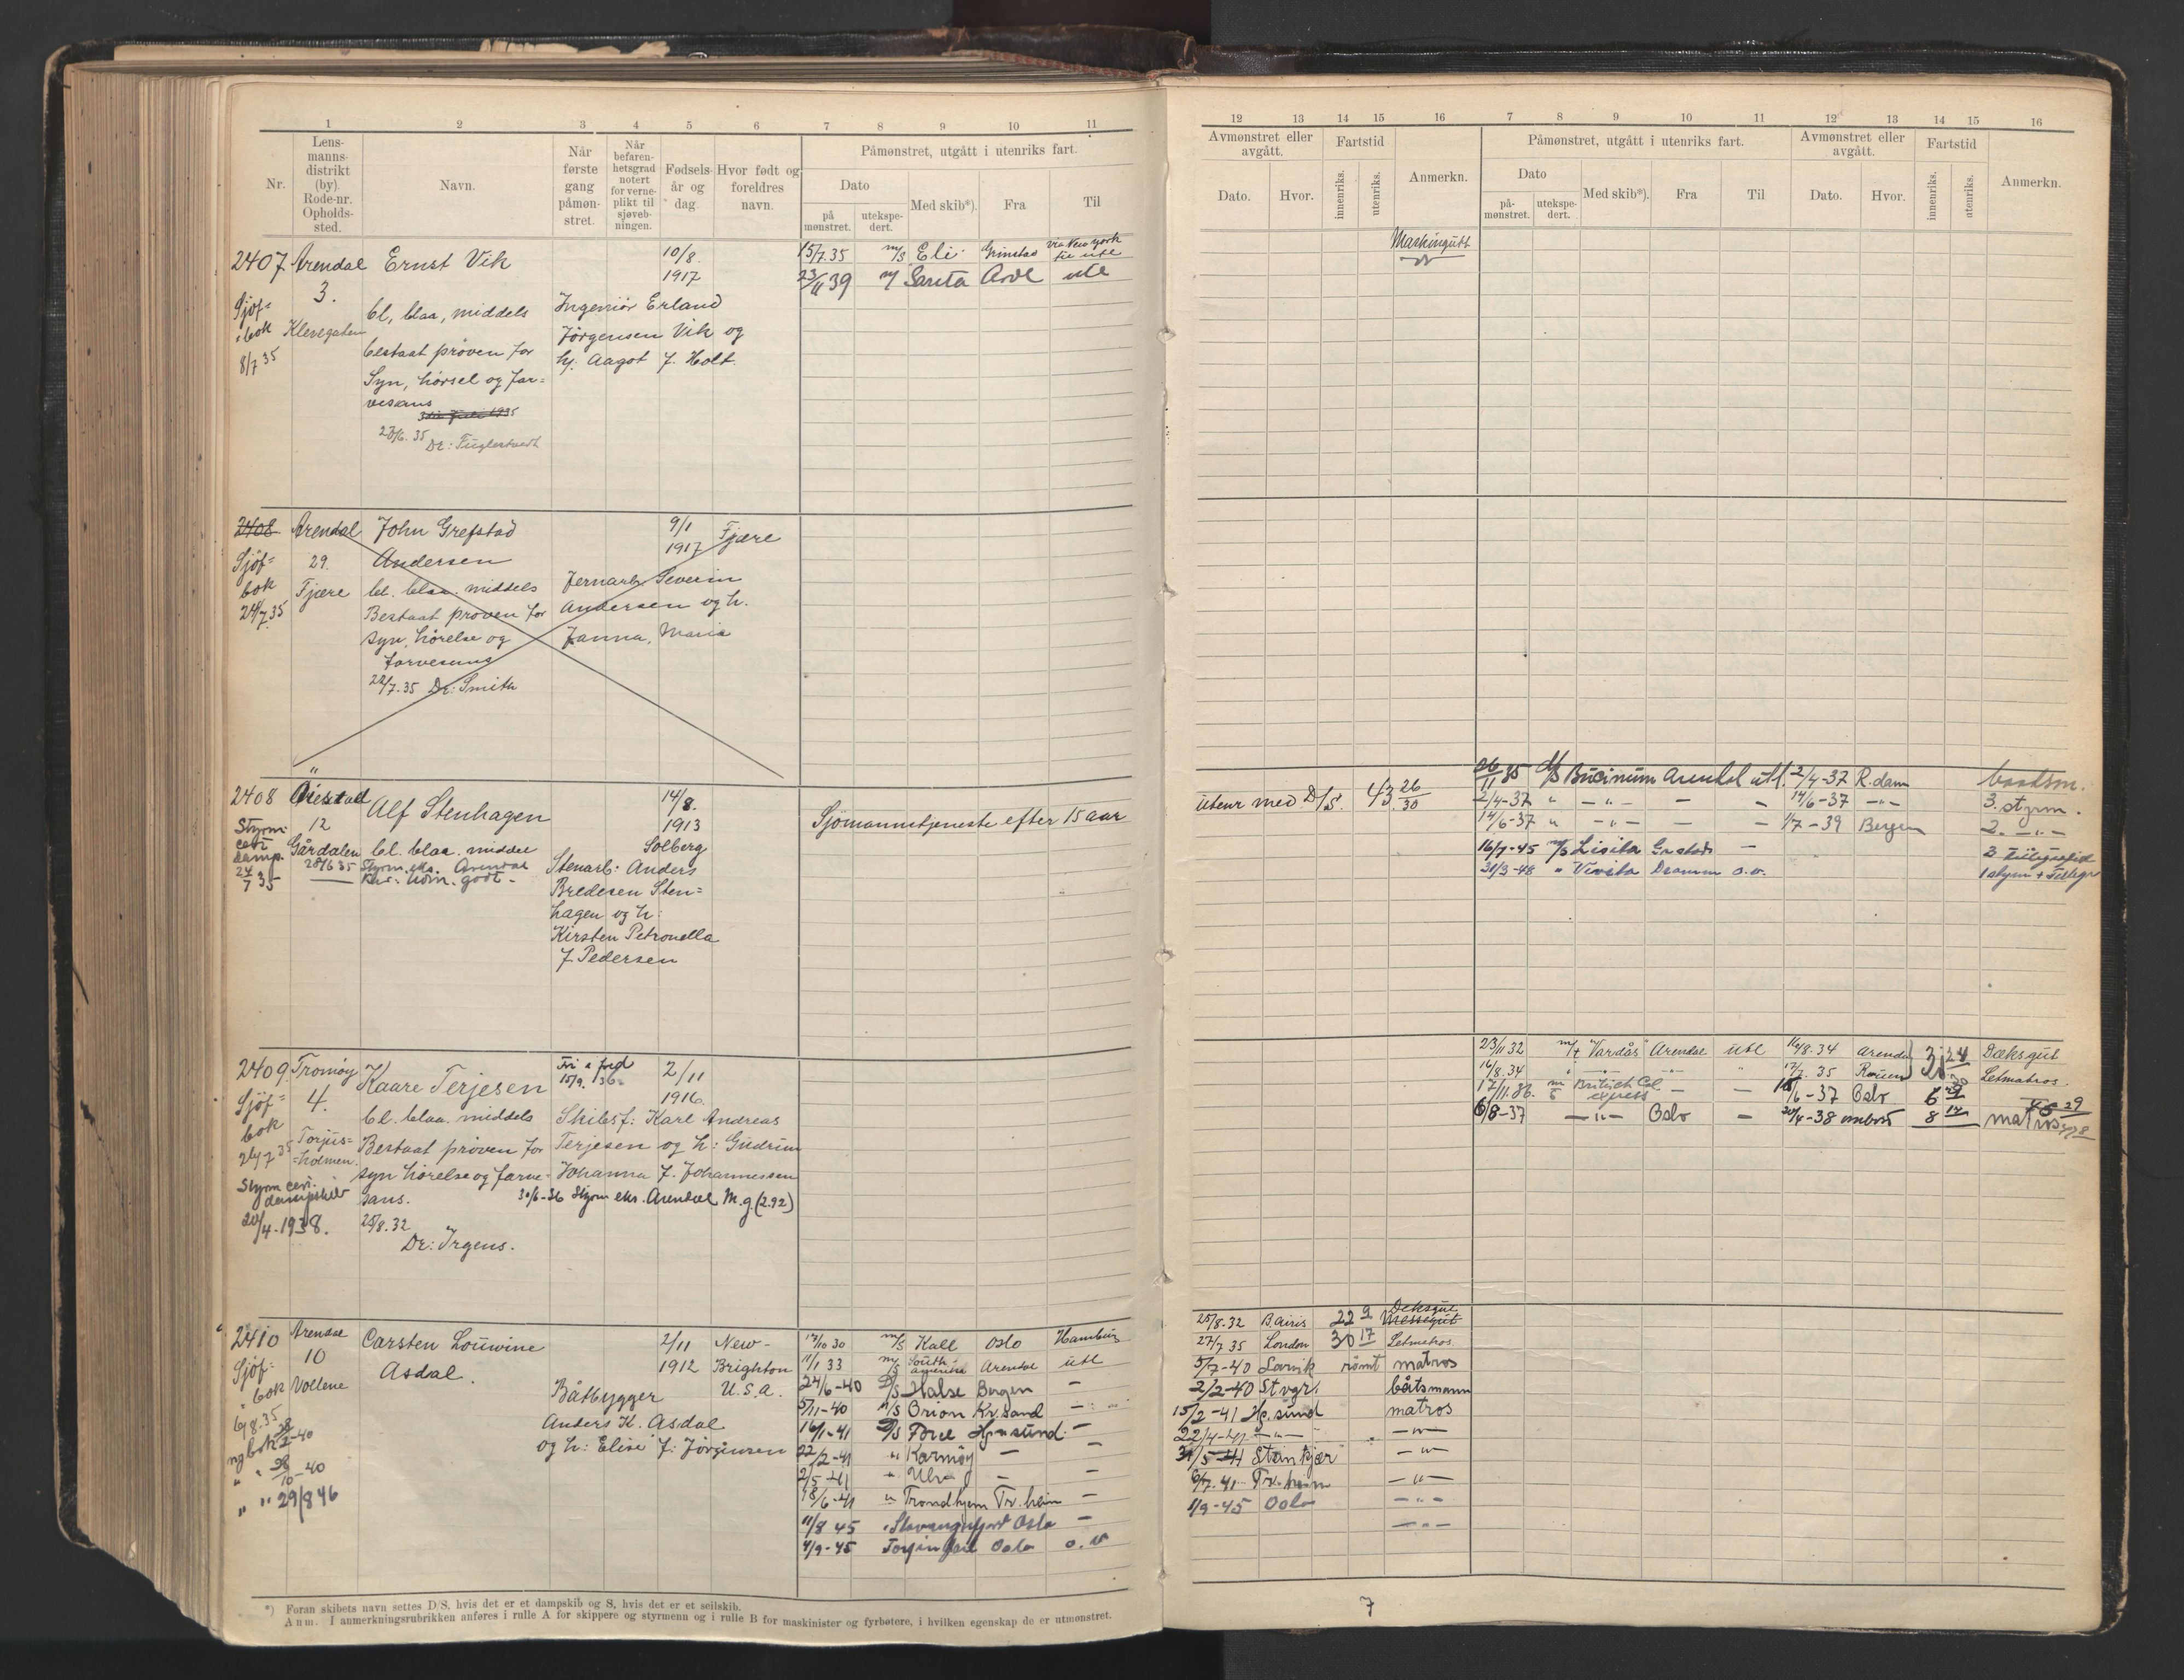 1 2 3 4 5 6 7 8 9 10 11
Nr.
Lens-
manns-
distrikt
(by).
Rode-nr.
Opholds-
sted.
Navn.
Når
første
gang
påmøn-
stret.
Når
befaren-
hetsgrad
notert
for verne-
plikt til
sjøveb-
ningen.
Fødsels-
år og
dag.
Hvor født og
foreldres
navn.
Påmønstret, utgått i utenriks fart.
Dato
på
mønstret.
utekspe-
dert.
Med skib*).
Fra
Til
2407 Arendal Ernst Vik 10/8. 15/7.35 m/s Eli Grimstad via New York til utl
3. 1917 23/11 39 m/ Sarita Avl utl
Sjöf=
bok Klevegaten bl, blaa, middels Ingeniör Erland
8/7 35 bestaat pröven for Jörgensen Vik og
Syn, hörsel og far= h. Aagot f. Holt.
vesans
23/6. 35 Dr: Fuglestvedt
2408 Arendal John Grefstad 9/1 Fjære
Sjöf= 29. Andersen 1917
bok Fjære bl. blaa. middels Jernarb Severin
24/7 35 Bestaat pröven for Andersen og h.
syn, hörelse og Janna, Maria
farvesans
22/7.35 Dr: Smith
2408 Öiestad Alf Stenhagen 14/8.
12 1913 Sjömannstjeneste efter 15 aar
Styrm. Gårdalen bl. blaa. middel Solberg
damp. 28/6 35 Styrm. eks. Arendal Stenarb: Anders
24/7 35 Bredesen Sten=
hagen og h:
Kirsten Petronella
f Pedersen
2409 Tromöy Kaare Terjesen Fri a fred 2/11
Sjöf= 4. 15/9. 36 1916.
bok bl. blaa. middels Skibsf: Karl Andreas
26/7 35 Torjus= Bestaat pröven for Terjesen og h: Gudrun
=holmen. syn hörelse og farve- Johanna f. Johannessen
Styrm cert. dampskib sans. 30/6-36 Styrm eks. Arendal M.g. (2.92)
20/4-1938. 25/8.32
Dr: Irgens.
2410 Arendal Carsten Louwine 2/11 New- 17/10 30 m/s Kall Oslo Hamburg
Sjöf= 10 Asdal. 1912 Brighton 11/1 33 m/s South America Arendal utl
bok Vollene U.S.A. 24/6-40 D/s Halse Bergen —
6/8.35 Båtbygger 5/11-40 m/s Orion Kr.sand —
Anders K. Asdal 16/1-41 D/s Brie —
og h: Elise f: Jörginsen 22/2-41 " Karmöy — —
2/5-41 " — —
18/6-41 " Trondhjem Tr.heim —
" " 29/8 46 11/8 45 " Stavangerfjord Oslo —
4/9-45 Oslo o.v
*) Foran skibets navn settes D/S, hvis det er et dampskib og S, hvis det er et seilskib.
Anm. I anmerkningsrubrikken anføres i rulle A for skippere og styrmenn og i rulle B for maskinister og fyrbøtere, i hvilken egenskap de er utmønstret.
12 13 14 15 16 7 8 9 10 11 12 13 14 15 16
Avmønstret eller
avgått.
Fartstid
Dato.
Hvor.
innenriks.
utenriks.
Anmerkn.
Påmønstret, utgått i utenriks fart.
Dato
på-
mønstret.
utekspe-
dert.
Med skib*).
Fra
Til
Avmønstret eller
avgått.
Dato.
Hvor.
Fartstid
innenriks.
utenriks.
Anmerkn.
Maskingutt
utenr med D/S. 43 26/30
26/11 35 D/s Bucinum Arendal utl. 2/4-37 R.dam baatsm.
2/4-37 " — " — — — 14/6-37 — " — 3. styrm.
14/6-37 " — " — — — 1/7-39 Bergen 2. — " —
16/7-45 m/s Lisita —
31/3-48 " Vivita Dramm o.v. 1 styrm + Telegr
23/11 32 m/t "Vardås" Arendal utl 16/8.34 Arendal 3 24 Dæksgut
16/8.34 " 17/7. 35 Rouen Letmatros.
17/11.36. m/s British Col. express — — 15/6-37 Oslo 6 29
6/8-37 — " — Oslo — 20/4-38 ombord 8 14 matros
25/8.32 B.airis 22 9 Deksgut Messegut
27/7.35 London 30 17 Letmatros.
5/7-40 Larvik römt matros
2/2-40 Stvgr. båtsmann
15/2-41 matros
22/4-41 — " — — " —
31/5-41 Stenkjær — " —
6/7.41 Tr.heim — " —
1/9-45 Oslo — " —
— " —
7